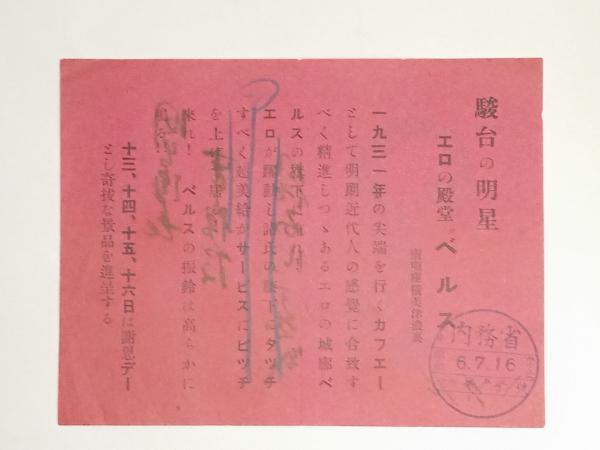 駿台の明星
エロの殿堂 ベルス
南明座横美津濃裏
一九三一年の尖端を行くカフエー
として明朗近代人の感覺に合致す
べく精進しつゝあるエロの城廓ベ
ルスの旗下
エロが躍動し諸氏の 下にタツチ
すべく超美給がサービスにピツチ
を上
來れ! ベルスの振鈴は高らかに
十三、十四、十五、十六日は謝恩デー
とし奇拔な景品を進呈する
内務省
6.7.16